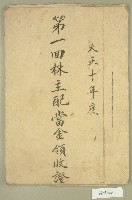 大正十年度
第一回株主配當金領收證